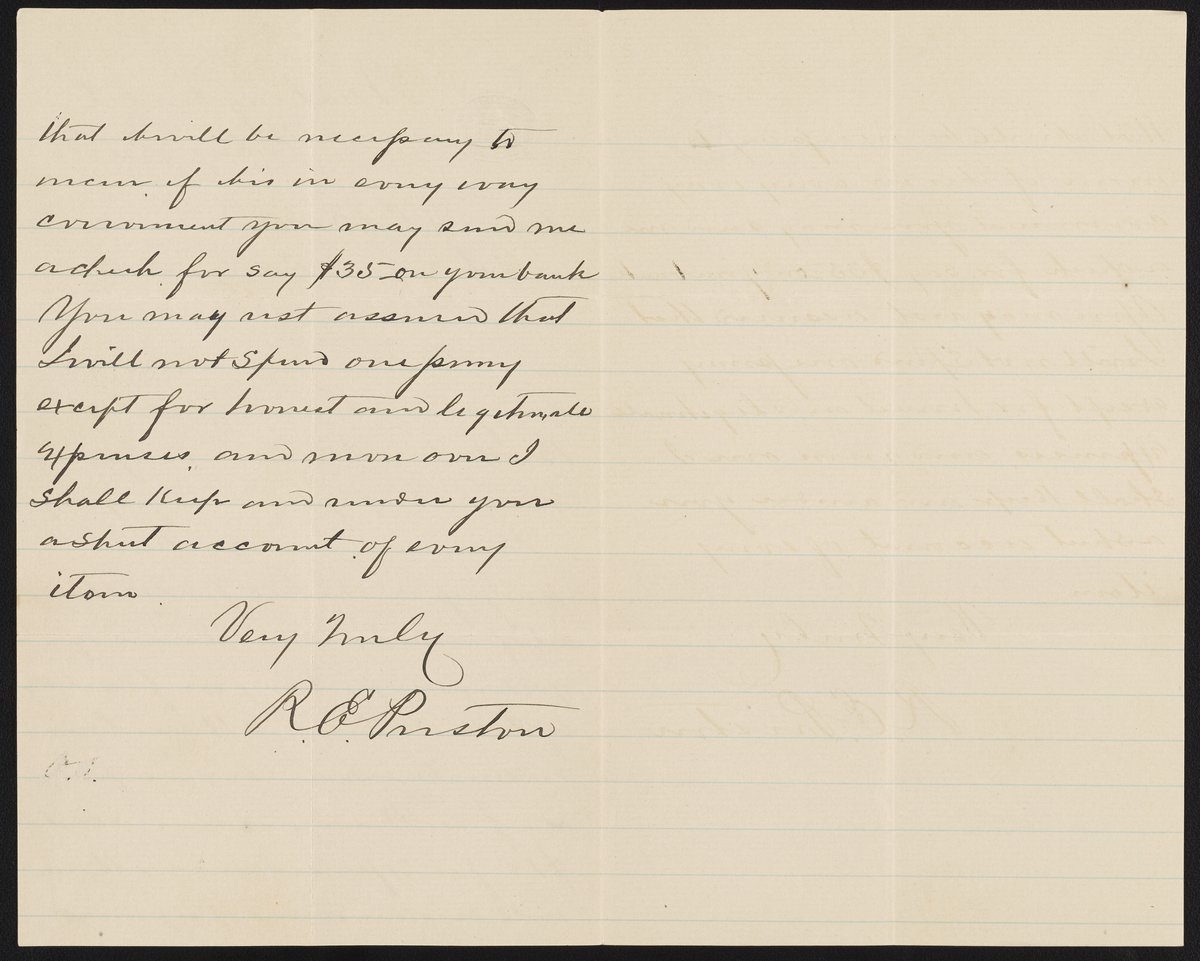 that it will be necessary to
incur. if it is in every way
convenient you may send me
a check for say $35 on your bank
You may rest assured that
I will not spend one penny
except for honest and legitimate
expenses. and more over I
shall keep and render you
a strict account of every
item.
Very Truly
R. E. Preston